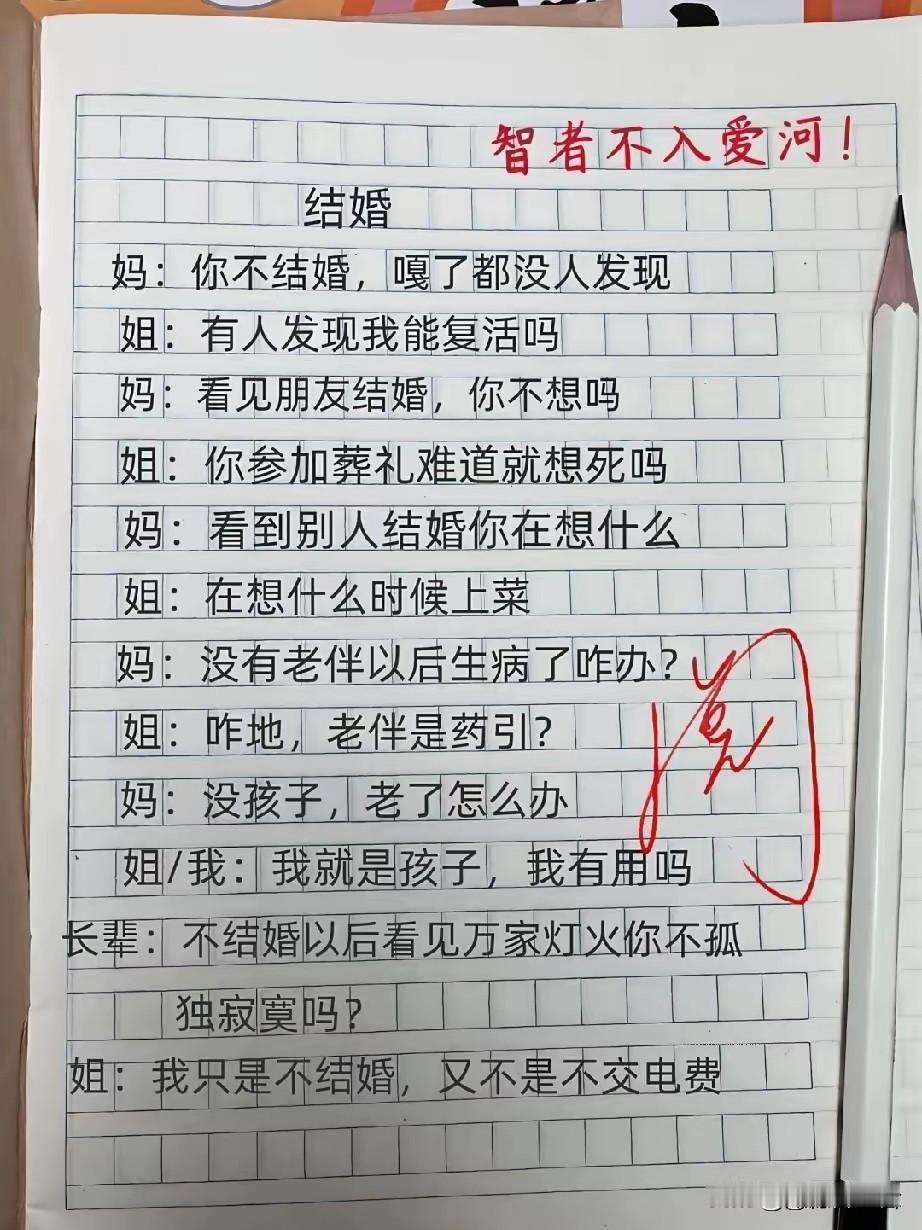 智者不入爱河！
结婚
妈：你不结婚，嘎了都没人发现
姐：有人发现我能复活吗
妈：看见朋友结婚，你不想吗
姐：你参加葬礼难道就想死吗
妈：看到别人结婚你在想什么
姐：在想什么时候上菜
妈：没有老伴以后生病了咋办？
姐：咋地，老伴是药引？
妈：没孩子，老了怎么办
姐/我：我就是孩子，我有用吗
长辈：不结婚以后看见万家灯火你不孤
独寂寞吗？
姐：我只是不结婚，又不是不交电费
阅